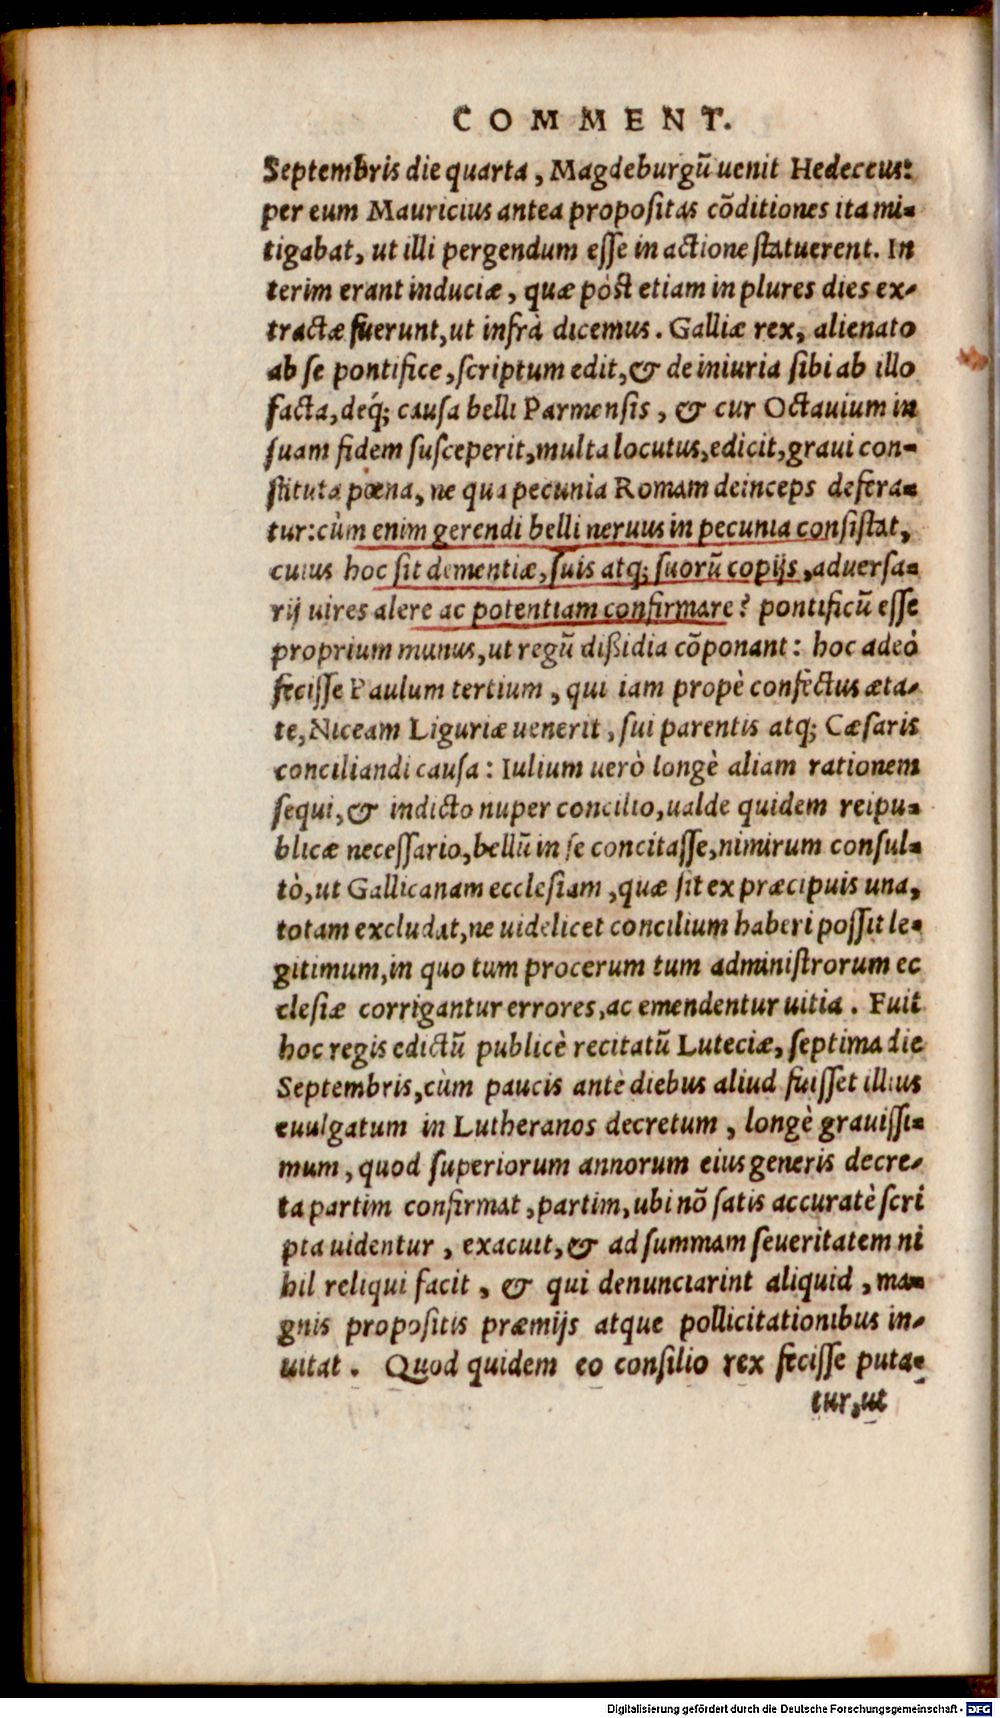 COMMENT.
Septembris die quarta, Magdeburgũ uenit Hedeceus:
per eum Mauricius antea propositas cõditiones ita mi-
tigabat, ut illi pergendum esse in actione statuerent. In
terim erant induciæ, quæ pòst etiam in plures dies ex-
tractæ fuerunt, ut infrà dicemus. Galliæ rex, alienato
ab se pontifice, scriptum edit, & de iniuria sibi ab illo
facta, deq; causa belli Parmensis, & cur Octauium in
suam fidem susceperit, multa locutus, edicit, graui con-
stituta pœna, ne qua pecunia Romam deinceps defera-
tur: cùm enim gerendi belli neruus in pecunia consistat,
cuius hoc sit dementiæ, suis atq; suorũ copijs, aduersa-
rij uires alere ac potentiam confirmare? pontificũ esse
proprium munus, ut regũ dißidia cõponant: hoc adeò
fecisse Paulum tertium, qui iam propè confectus æta-
te, Niceam Liguriæ uenerit, sui parentis atq; Cæsaris
conciliandi causa: Iulium uerò longè aliam rationem
sequi, & indicto nuper concilio, ualde quidem reipu-
blicæ necessario, bellũ in se concitasse, nimirum consul-
tò, ut Gallicanam ecclesiam, quæ sit ex præcipuis una,
totam excludat, ne uidelicet concilium haberi possit le-
gitimum, in quo tum procerum tum administrorum ec
clesiæ corrigantur errores, ac emendentur uitia. Fuit
hoc regis edictũ publicè recitatũ Luteciæ, septima die
Septembris, cùm paucis antè diebus aliud fuisset illius
euulgatum in Lutheranos decretum, longè grauissi-
mum, quod superiorum annorum eius generis decre-
ta partim confirmat, partim, ubi nõ satis accuratè scri
pta uidentur, exacuit, & ad summam seueritatem ni
hil reliqui facit, & qui denunciarint aliquid, ma-
gnis propositis præmijs atque pollicitationibus in-
uitat. Quod quidem eo consilio rex fecisse puta-
tur, ut
Digitalisierung gefördert durch die Deutsche Forschungsgemeinschaft - DFG